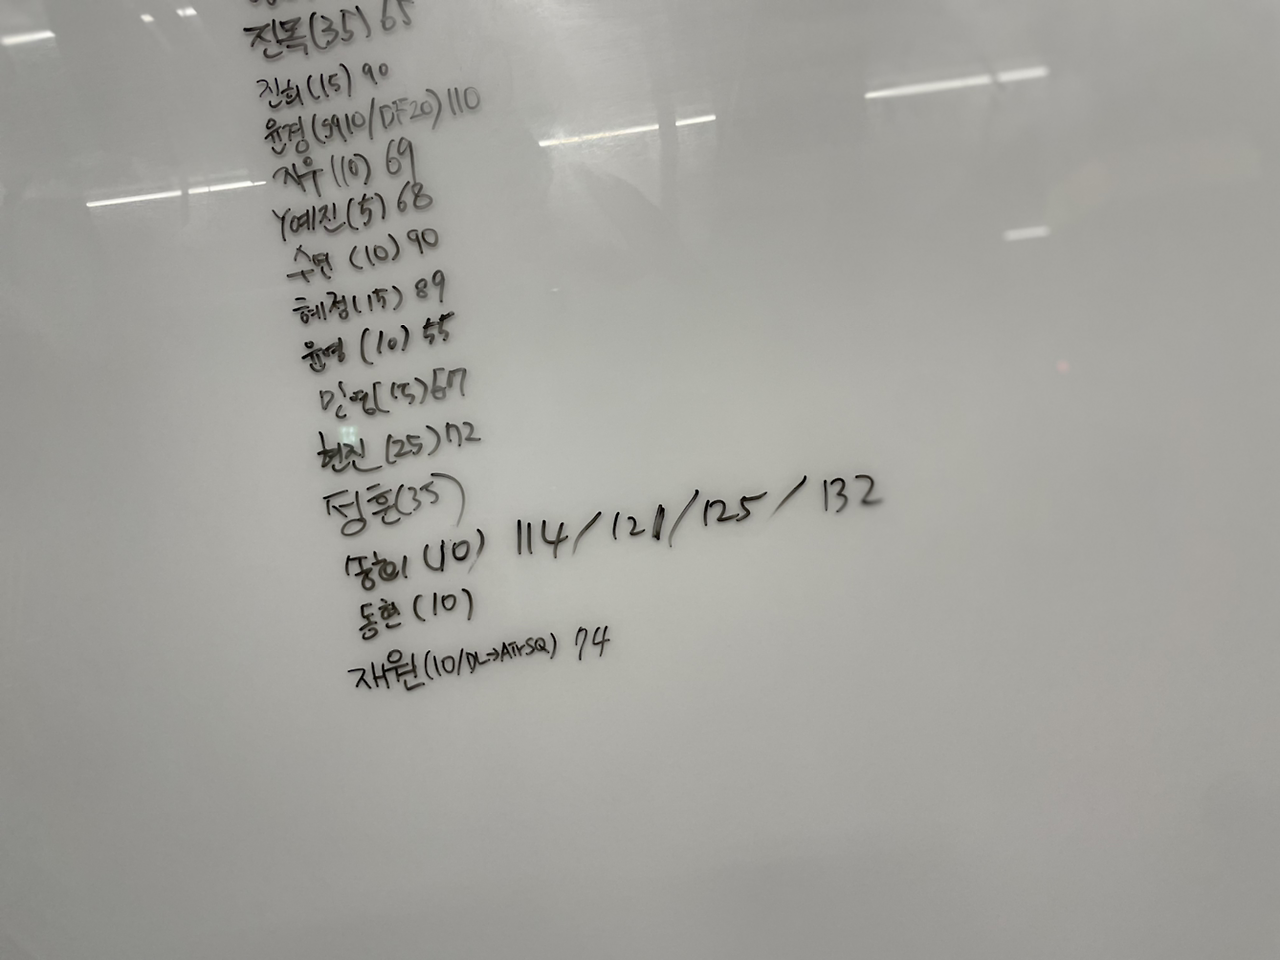 진목(35) 65
진희(15) 90
윤경(SQ10/DF20) 110
지우(10) 69
Y예진(5) 68
수면 (10) 90
혜정(15) 89
윤영 (10) 55
민영(15) 67
현진 (25) 72
정훈(35)
(10) 114/121/125/132
동현 (10)
재원(10/DL→AirSQ) 74